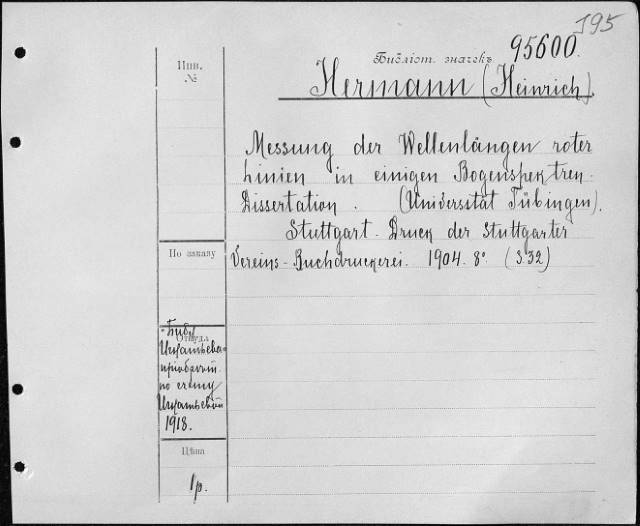 195
Библіот. значекъ 95600.
Инв.
№
Hermann (Heinrich).
Messung der Wellenlängen roter
Linien in einigen Bogenspektren.
Dissertation. (Universität Tübingen).
Stuttgart. Druck der Stuttgarter
Vereins-Buchdruckerei. 1904. 8° (S.32)
По заказу
Откуда
по счету
1918.
Цѣна
1р.